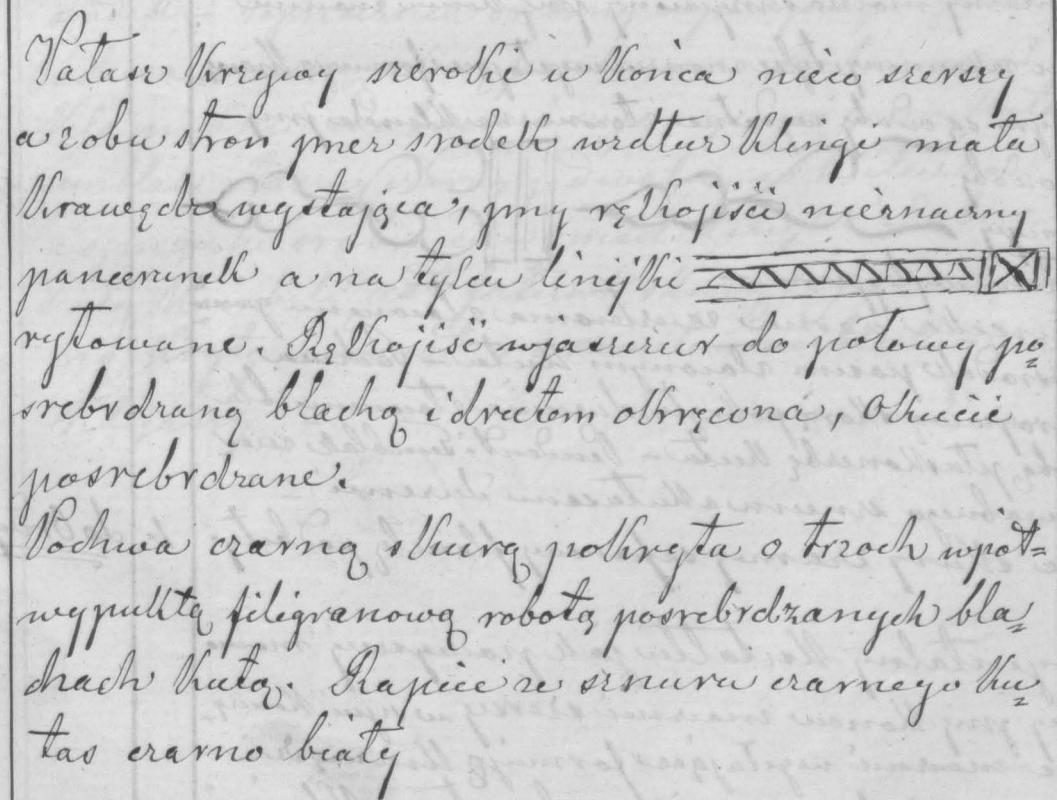 Pałasz krzywy szeroki u końca nieco szerszy
a z obu stron przez srodek wzdłuz klingi mała
krawędz wystająca, przy rękojiści nieznaczny
pancerunek a na tylcu linijki
rytowane. Rękojiść wjaszczur do połowy po=
srebrdzaną blachą i drutem okręcona, okucie
posrebrdzane.
Pochwa czarną skurą pokryta o trzoch wpół=
wypukłą filigranową robotą posrebrdzanych bla=
chach kutą. Rapcie ze sznuru czarnego ku=
tas czarno biały